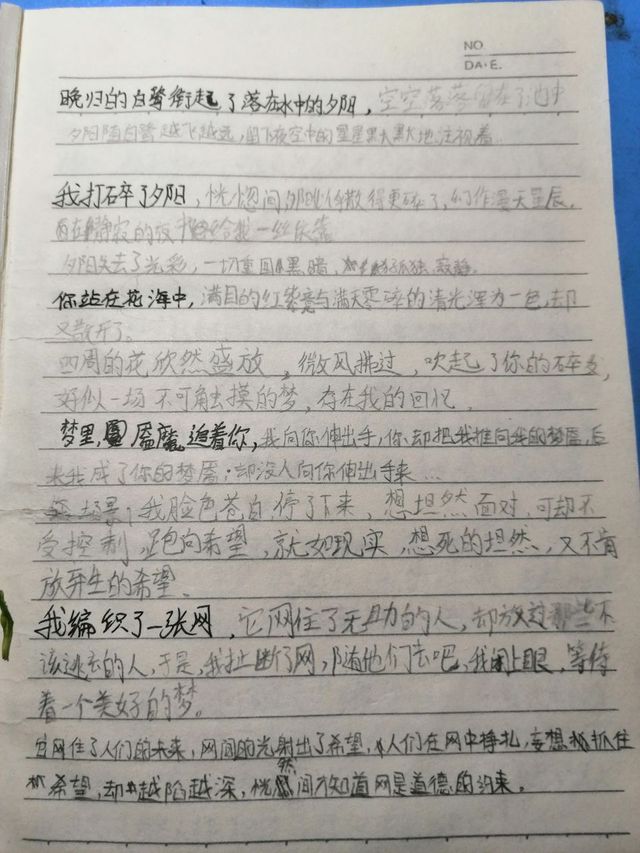 NO
DA·E.
晚归的白鹭衔起了落在水中的夕阳，空空荡荡留在了池中
夕阳随白鹭越飞越远，留下夜空中的星星默默地注视着…
我打碎了夕阳，恍惚间夕阳似乎散得更碎了，幻作漫天星辰，
再在静寂的夜中给我一丝依靠
夕阳失去了光彩，一切重回黑暗，孤独，寂静。
你站在花海中，满目的红紫竟与满天零碎的清光浑为一色，却
又散开了。
四周的花欣然盛放，微风拂过，吹起了你的碎发，
好似一场不可触摸的梦，存在我的回忆。
梦里，梦魇追着你，我向你伸出手，你却把我推向我的梦魇，后
来我成了你的梦魇；却没人向你伸出手来…
我脸色苍白，停了下来，想坦然面对，可却不
受控制，跑向希望，就如现实，想死的坦然，又不肯
放弃生的希望。
我编织了一张网，它网住了无助的人，却放过那些不
该逃去的人，于是，我扯断了网，随他们去吧，我闭上眼，等待
着一个美好的梦。
网住了人们的未来，网间的光射出了希望，人们在网中挣扎，妄想抓住
希望，却越陷越深，恍然间才知道网是道德的约束。